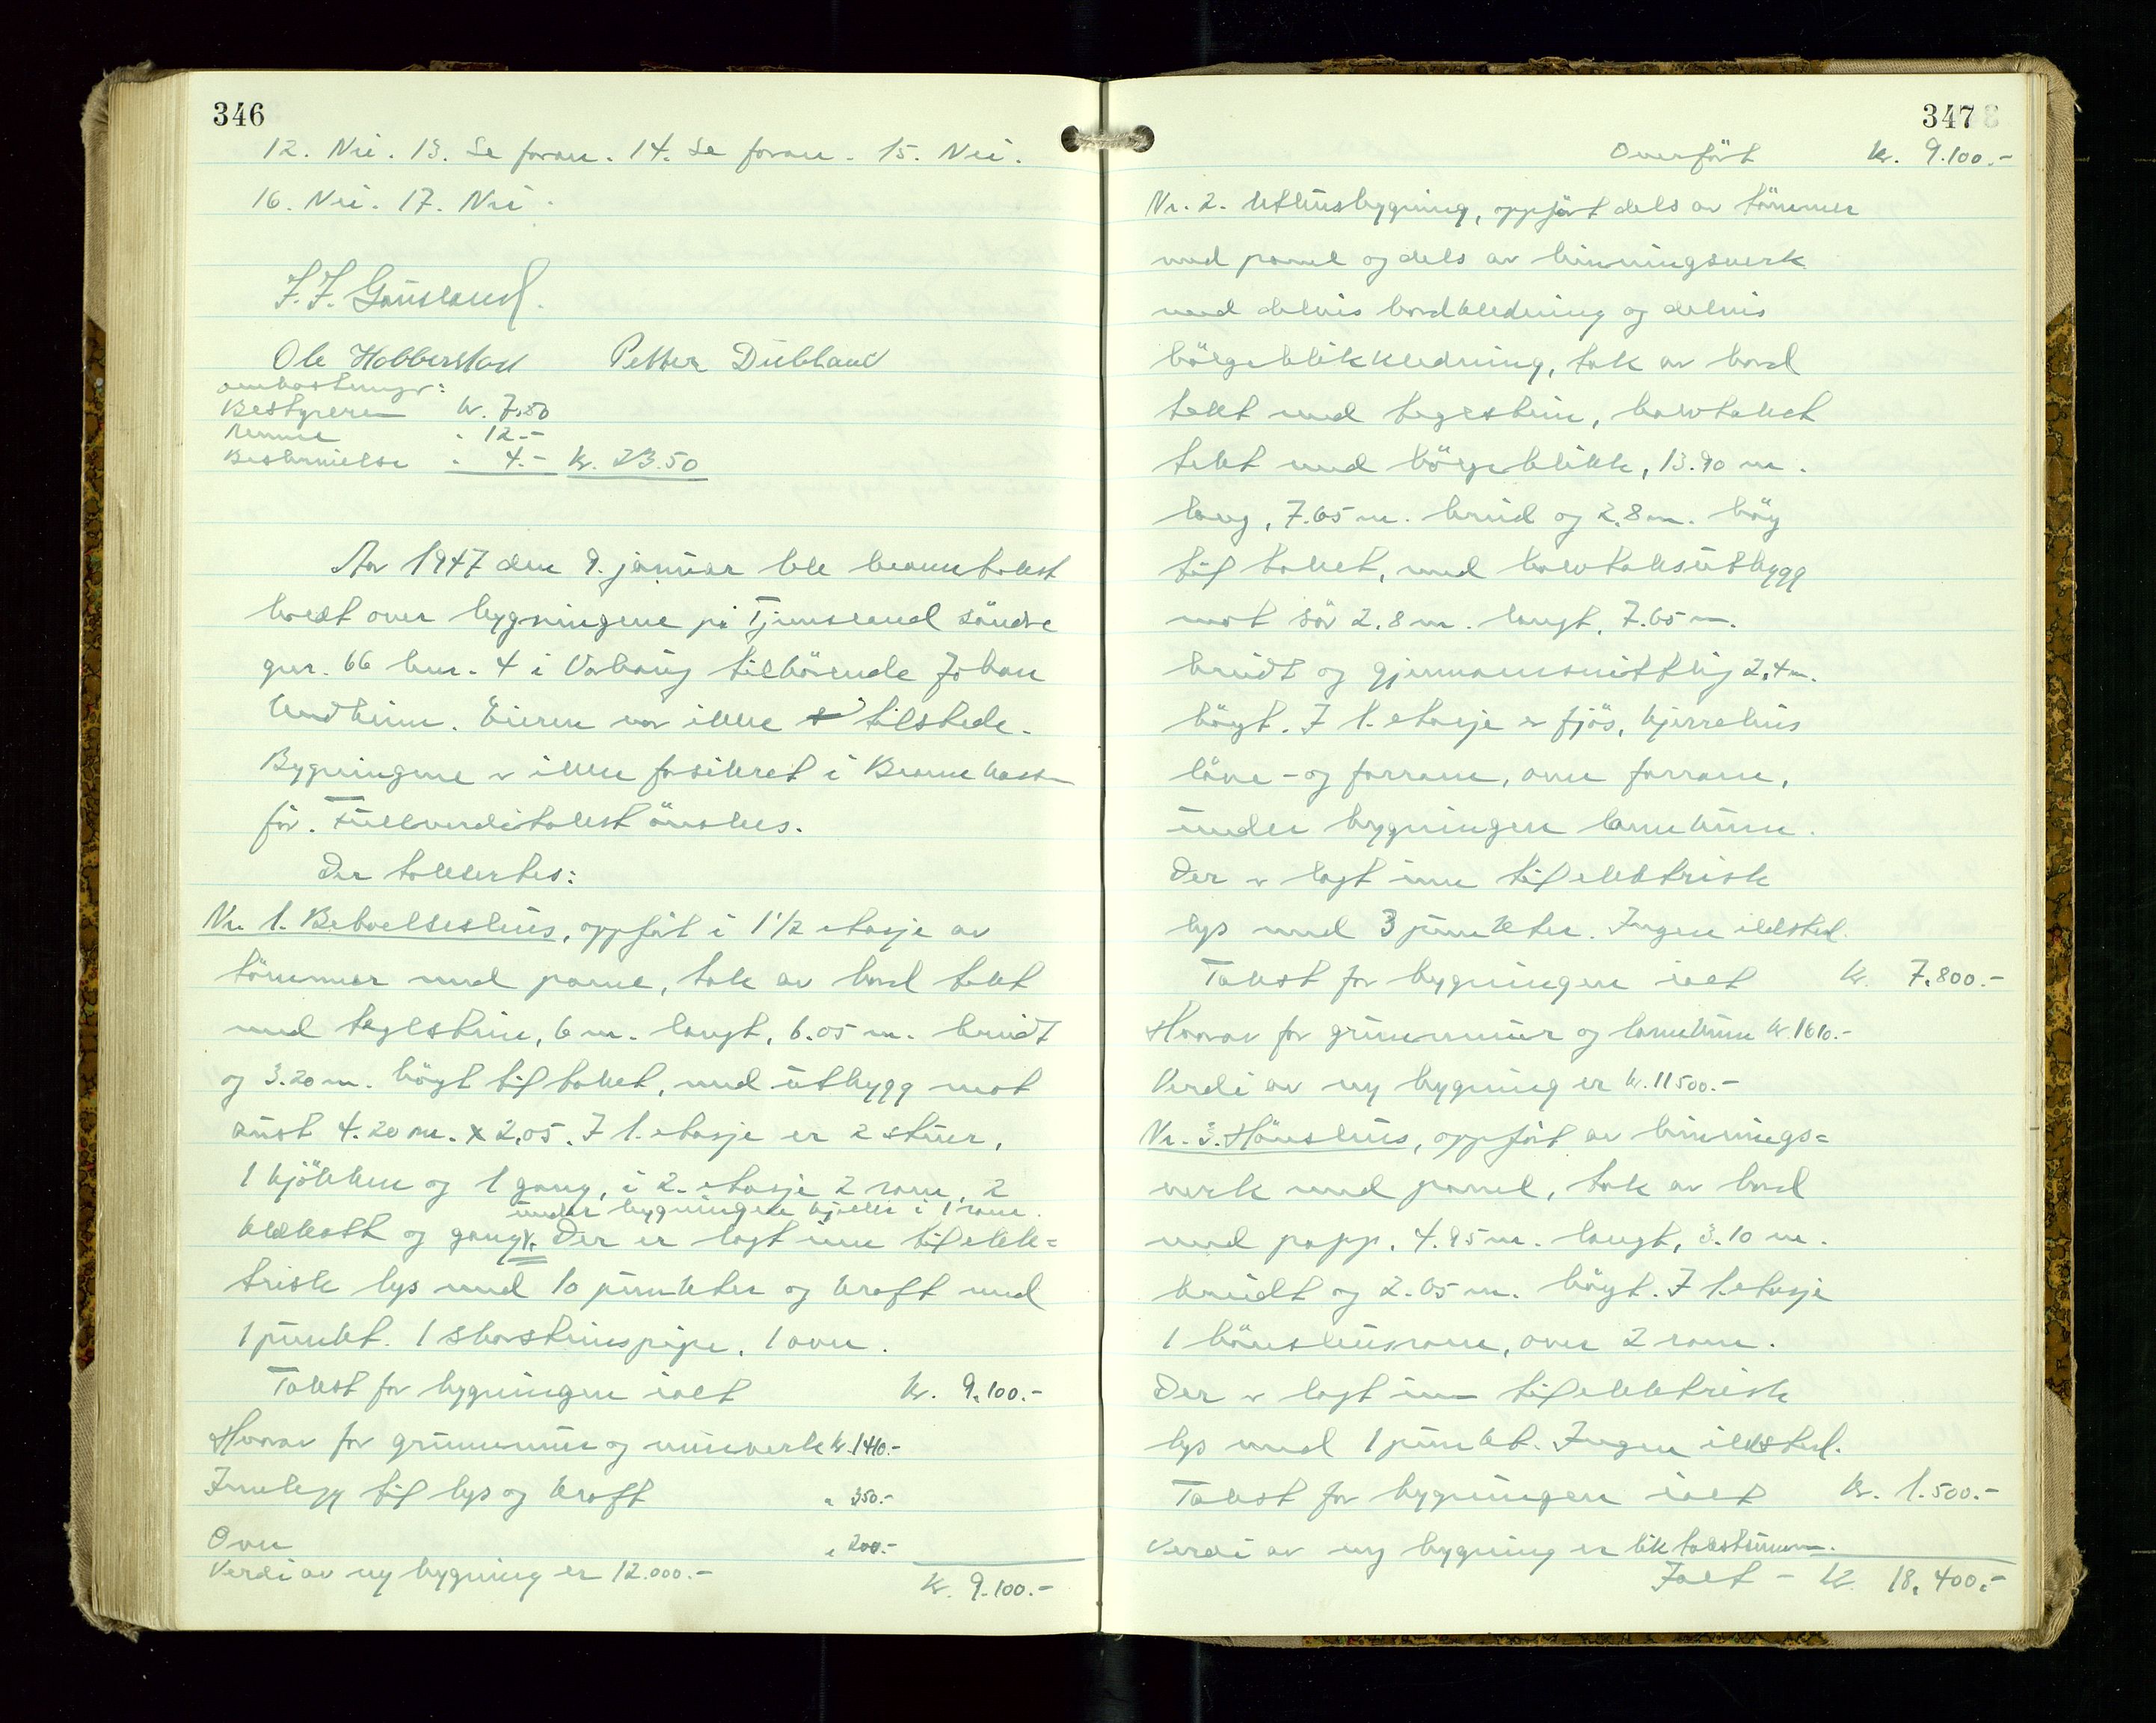 346
12. Nei. 13. Se foran. 14. Se foran. 15. Nei.
16. Nei. 17. Nei.
Ole Hobberstad Petter Dubland
Omkostninger:
Bestyreren kr. 7.50
Menn " 12.-
Beskrivelse " 4.- kr. 23.50
Aar 1947 den 9. januar ble branntakst
holdt over bygningene på Tjemsland söndre
gnr. 66 bnr. 4 i Varhaug tilhörende Johan
Undheim. Eieren var ikke tilstede.
Bygningene er ikke forsikret i Brannkassen
för. Fullverditakst önskes.
Der taksertes:
Nr. 1. Beboelseshus, oppfört i 1 1/2 etasje av
tömmer med panel, tak av bord tekt
med teglstein, 6 m. langt, 6.05 m. breidt
og 3.20 m. högt til taket, med utbygg mot
aust 4.20 m. x 2.05. I 1. etasje er 2 stuer,
1 kjökken og 1 gang, i 2. etasje 2 rom, 2
under bygningen kjeller i 1 rom.
klekott og gang. Der er lagt inn til elek=
trisk lys med 10 punkter og kraft med
1 punkt. 1 skorsteinspipe. 1 ovn.
Takst for bygningen ialt kr. 9.100.-
Herav for grunnmur og murverk kr. 1410.-
Innlegg til lys og kraft " 350.-
Ovn " 200.-
Verdi av ny bygning er 12.000.-
kr. 9.100.-
347
Overfört kr. 9.100.-
Nr. 2. Uthusbygning, oppfört dels av tömmer
med panel og dels av binningsverk
med delvis bordkledning og delvis
bölgeblikkledning, tak av bord
tekt med teglstein, halvtaket
tekt med bölgeblikk, 13.90 m.
lang, 7.65 m. breid og 2.8 m. höy
til taket, med halvtaksutbygg
mot sör 2.8 m. langt, 7.65 m.
breidt og gjennomsnittlig 2.4 m.
högt. I 1. etasje er fjös, kjerrehus
löve- og forrom, over forrom,
under bygningen landkum.
Der er lagt inn til elektrisk
lys med 3 punkter. Ingen ildsted.
Takst for bygningen ialt kr. 7.800.-
Herav for grunnmur og landkum kr. 1610.-
Verdi av ny bygning er kr. 11500.-
Nr. 3. Hönsehus, oppfört av binnings=
verk med panel, tak av bord
med papp, 4.95 m. langt, 3.10 m.
breidt og 2.05 m. högt. I 1. etasje
1 hönsehusrom, over 2 rom.
Der er lagt inn til elektrisk
lys med 1 punkt. Ingen ildsted.
Takst for bygningen ialt kr. 1.500.-
Verdi av ny bygning er lik takstsummen.
Ialt - kr. 18.400.-